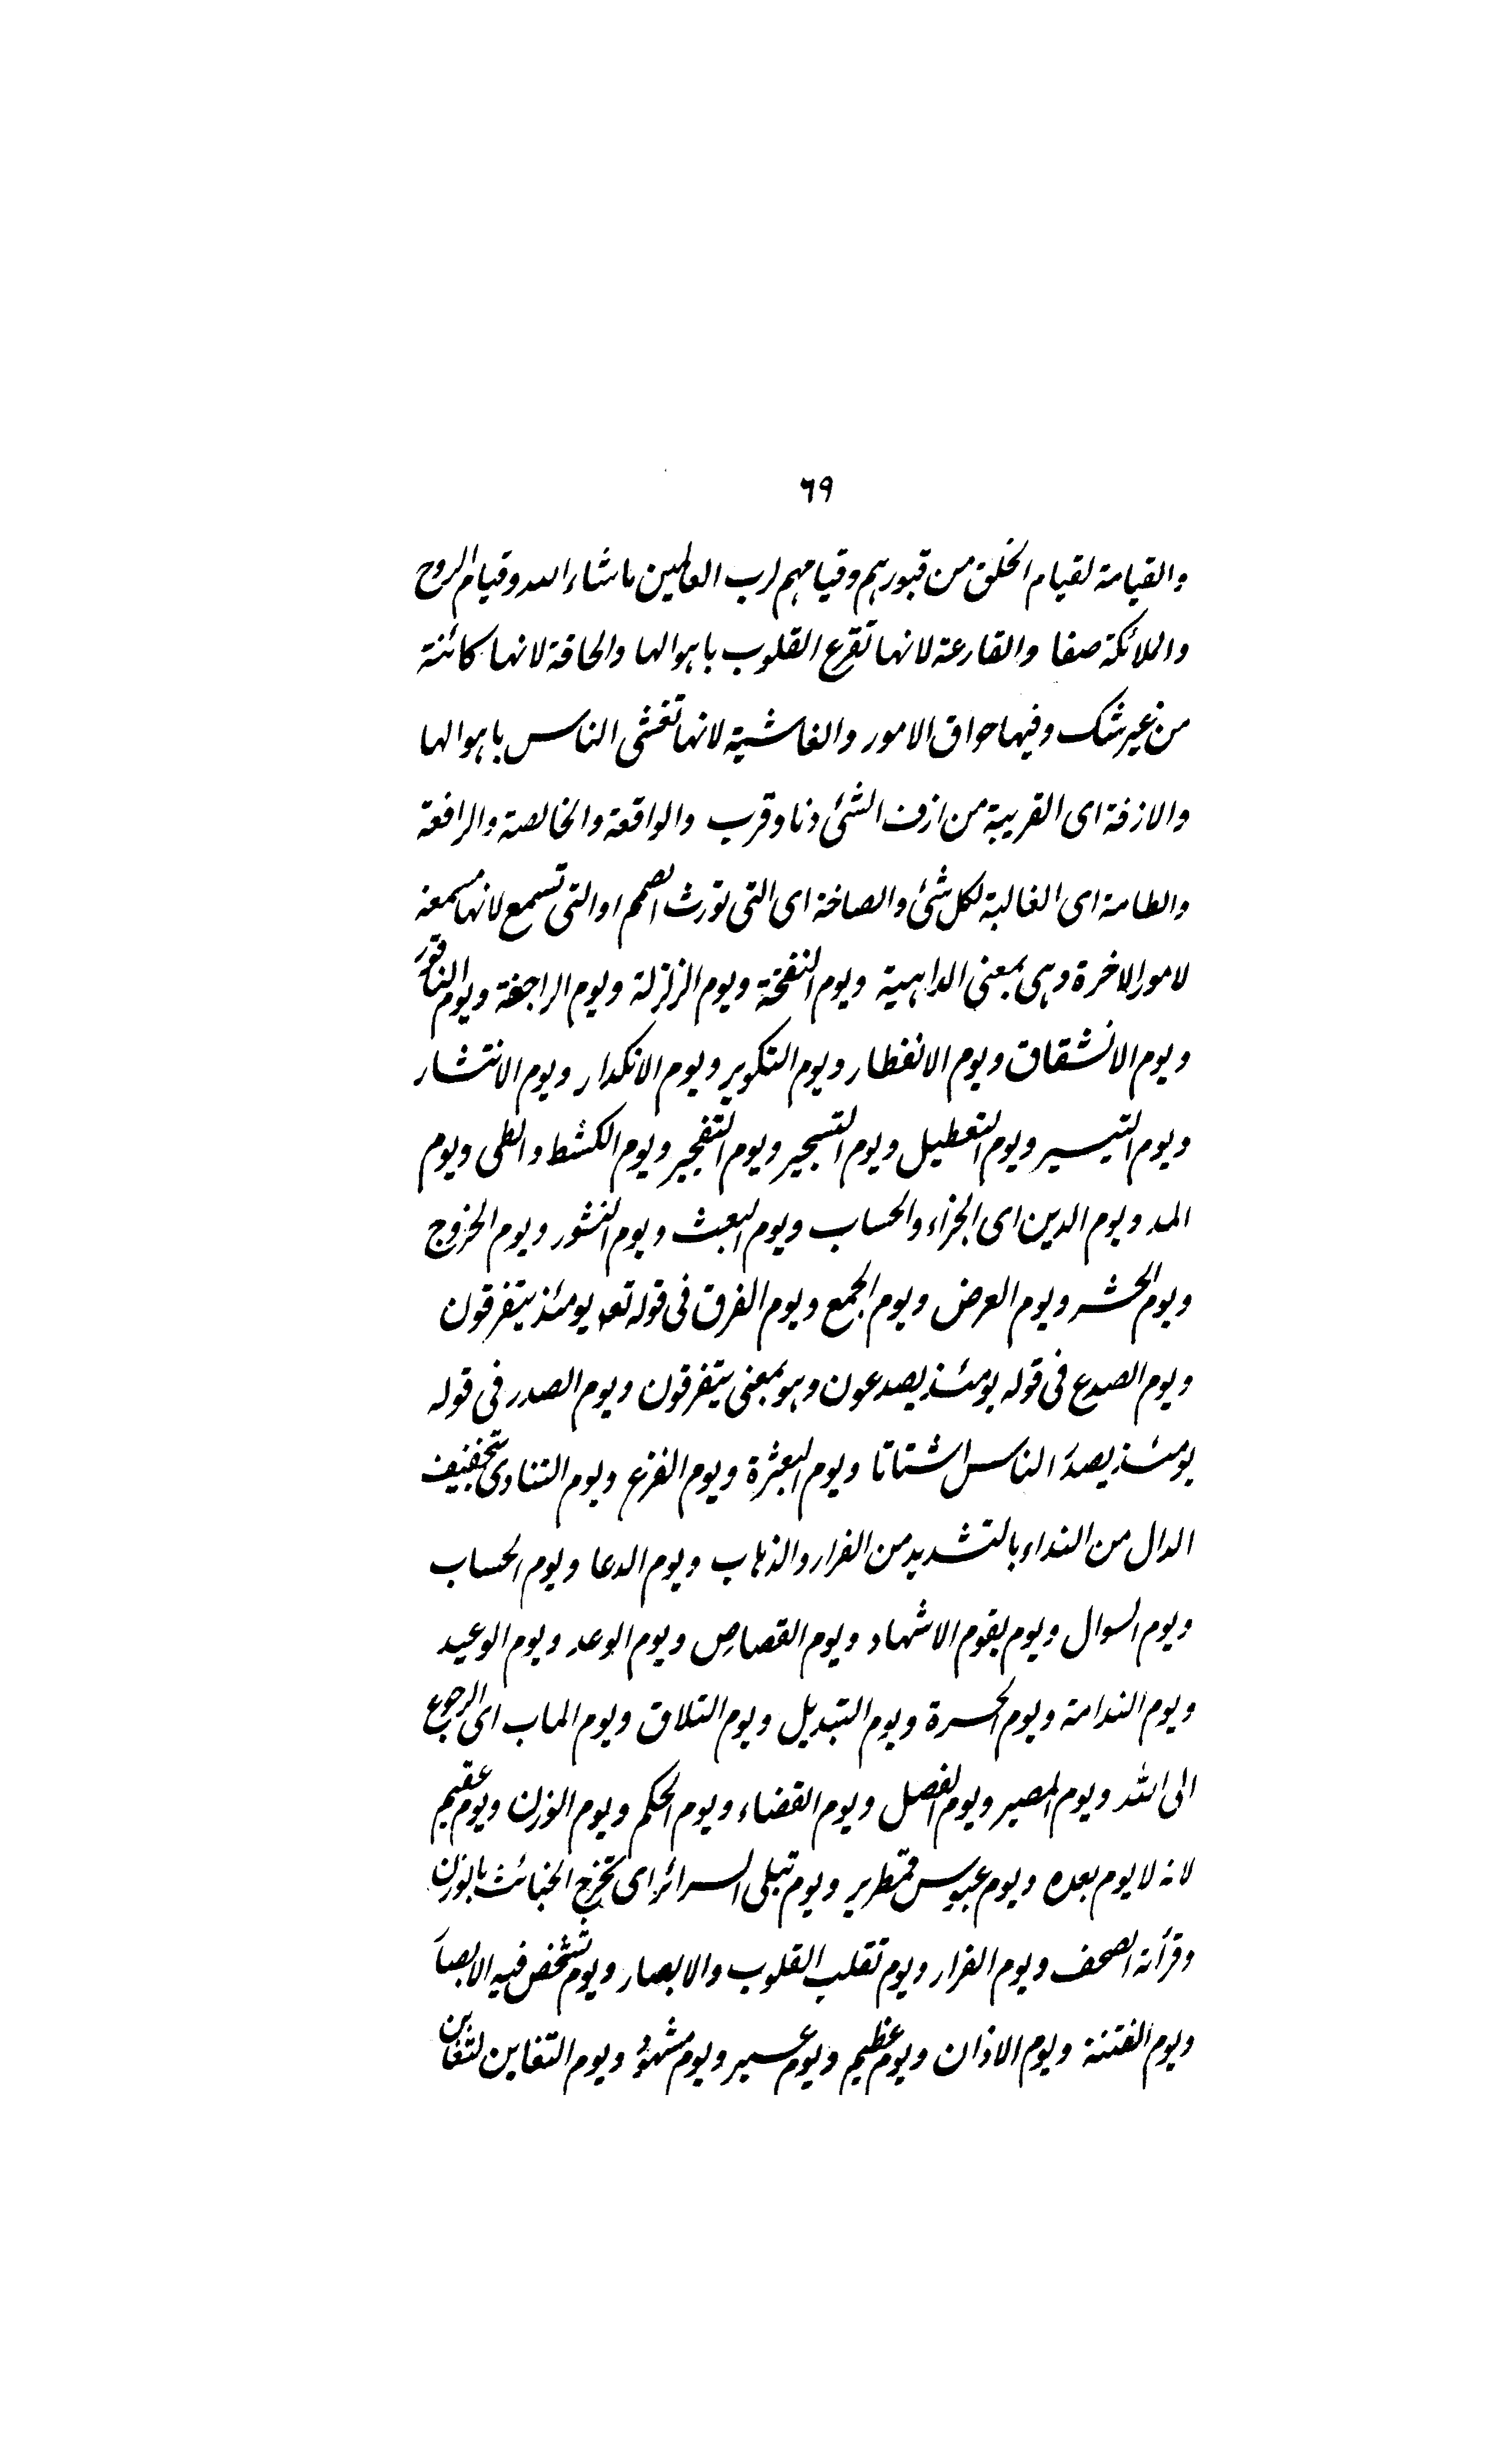 ٦٩
والقیامة لقیام الخلق من قبورهم وقیامهم لرب العالمین ماشاء الله وقیام الروح
والملائکة صفا والقارعة لانها تقرع القلوب باهوالها والحاقة لانها کائنة
من غیر شک وفیها حواق الامور والغاشیة لانها تغشی الناس باهوالها
والازفة ای القریبة من ازف الشئ دنا وقرب والواقعة والخالصة والرافعة
والطامة ای الغالبة لکل شئ والصاخة ای التی تورث الصمم او التی تسمع لانها مسمعة
لامور الاخرة وهی بمعنی الداهیة ویوم النفخة ویوم الزلزلة ویوم الراجفة ویوم الناقور
ویوم الانشقاق ویوم الانفطار ویوم التکویر ویوم الانکدار ویوم الانتشار
ویوم التیسیر ویوم التعطیل ویوم التسجیر ویوم التفجیر ویوم الکشط والطی ویوم
المد ویوم الدین ای الجزاء والحساب ویوم البعث ویوم النشور ویوم الخروج
ویوم الحشر ویوم العرض ویوم الجمع ویوم الفرق فی قوله تعه یومئذ یتفرقون
ویوم الصدع فی قوله یومئذ یصدعون وهو بمعنی یتفرقون ویوم الصدر فی قوله
یومئذ یصدر الناس اشتاتا ویوم البعثرة ویوم الفزع ویوم التنادی بتخفیف
الدال من النداء بالتشدید من الفرار والذهاب ویوم الدعا ویوم الحساب
ویوم السوال ویوم یقوم الاشهاد ویوم القصاص ویوم الوعد ویوم الوعید
ویوم الندامة ویوم الحسرة ویوم التبدیل ویوم التلاق ویوم الماب ای الرجوع
الی الله ویوم المصیر ویوم الفصل ویوم القضاء ویوم الحکم ویوم الوزن ویوم عقیم
لانه لا یوم بعده ویوم عبوس قمطریر ویوم تبلی السرائر ای تخرج الخبائث بالوزن
وقرأئة الصحف ویوم الفرار ویوم تقلب القلوب والابصار ویوم تشخص فیه الابصار
ویوم الفتنة ویوم الاذان ویوم عظیم ویوم عسیر ویوم مشهود ویوم التغابن لتغابن